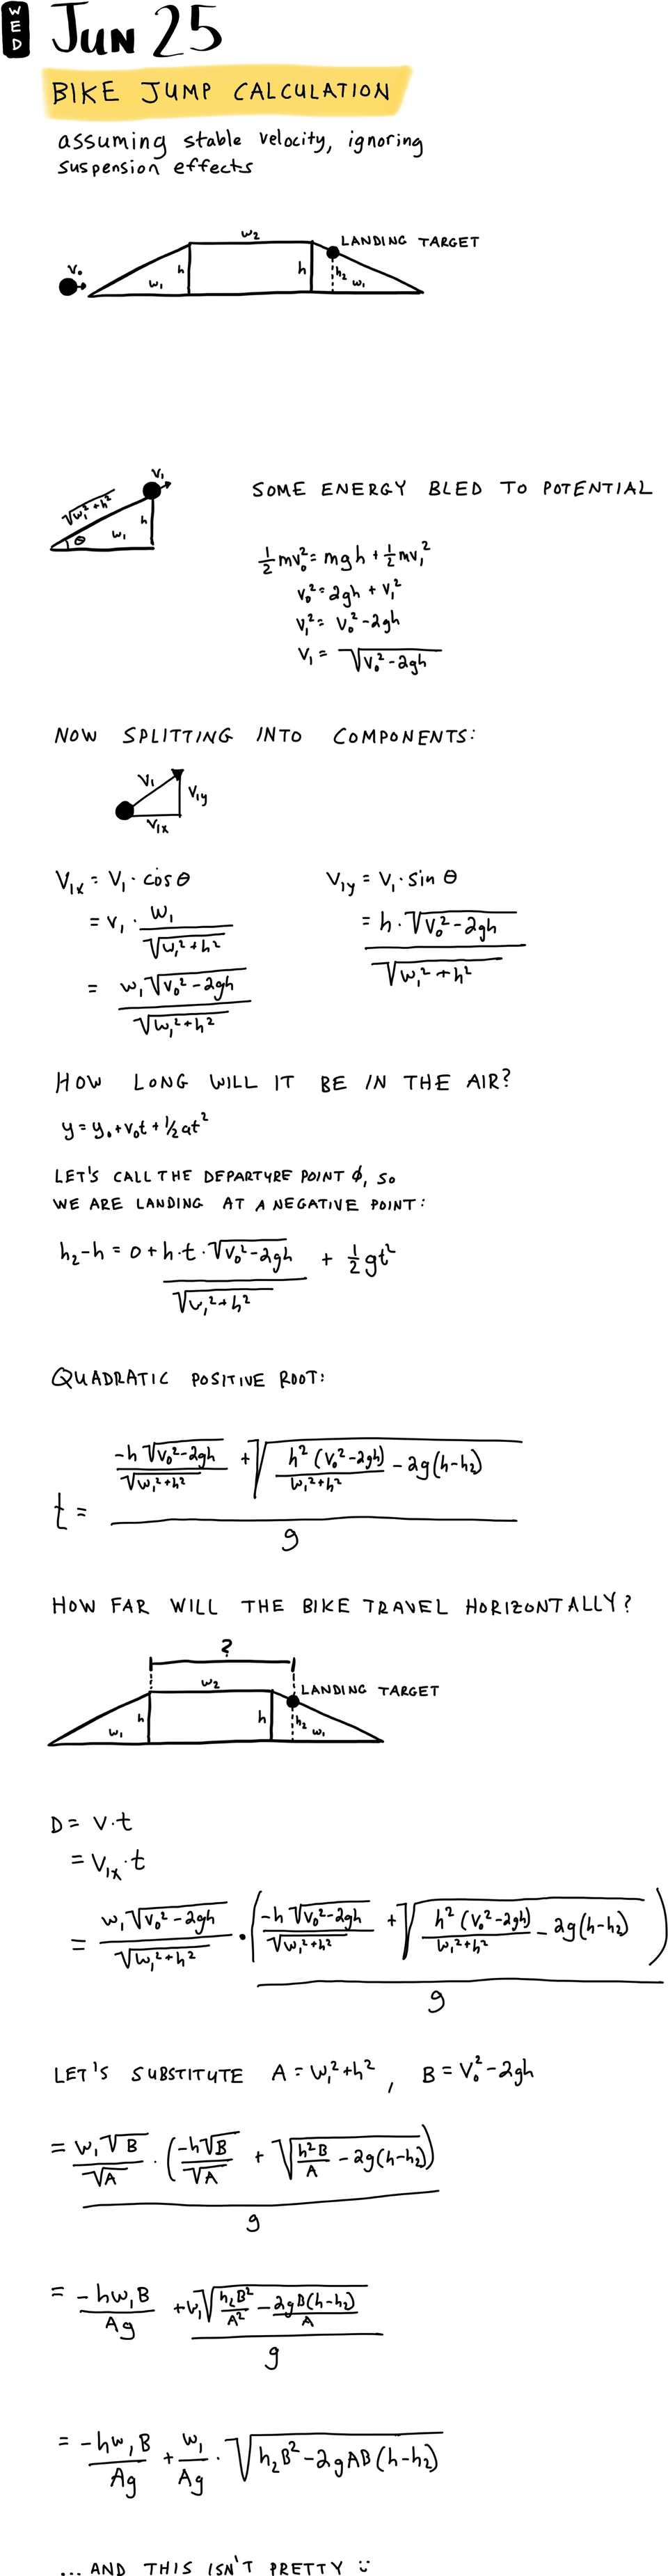 WED
JUN 25
BIKE JUMP CALCULATION
assuming stable velocity, ignoring
suspension effects
w₂
LANDING TARGET
v₀
h
h
h₂
w₁
w₁
v₁
√(w₁²+h²)
h
θ
w₁
SOME ENERGY BLED TO POTENTIAL
½mv₀² = mgh + ½mv₁²
v₀² = 2gh + v₁²
v₁² = v₀² - 2gh
v₁ = √(v₀² - 2gh)
NOW SPLITTING INTO COMPONENTS:
v₁
v₁y
v₁x
V₁x = V₁ · cos θ
= v₁ · w₁ / √(w₁² + h²)
= w₁√(v₀² - 2gh) / √(w₁² + h²)
V₁y = V₁ · sin θ
= h · √(v₀² - 2gh) / √(w₁² + h²)
HOW LONG WILL IT BE IN THE AIR?
y = y₀ + v₀t + ½at²
LET'S CALL THE DEPARTURE POINT ϕ, SO
WE ARE LANDING AT A NEGATIVE POINT:
h₂ - h = 0 + h · t · √(v₀² - 2gh) / √(w₁² + h²) + ½gt²
QUADRATIC POSITIVE ROOT:
t = (-h√(v₀² - 2gh) / √(w₁² + h²) + √(h²(v₀² - 2gh) / (w₁² + h²) - 2g(h - h₂))) / g
HOW FAR WILL THE BIKE TRAVEL HORIZONTALLY?
?
w₂
LANDING TARGET
h
h
h₂
w₁
w₁
D = v · t
= V₁x · t
= w₁√(v₀² - 2gh) / √(w₁² + h²) · (-h√(v₀² - 2gh) / √(w₁² + h²) + √(h²(v₀² - 2gh) / (w₁² + h²) - 2g(h - h₂))) / g
LET'S SUBSTITUTE A = w₁² + h², B = v₀² - 2gh
= w₁√B / √A · (-h√B / √A + √(h²B / A - 2g(h - h₂))) / g
= -hw₁B / Ag + w₁√(h₂B² / A² - 2gB(h - h₂) / A) / g
= -hw₁B / Ag + w₁ / Ag · √(h₂B² - 2gAB(h - h₂))
... AND THIS ISN'T PRETTY :)